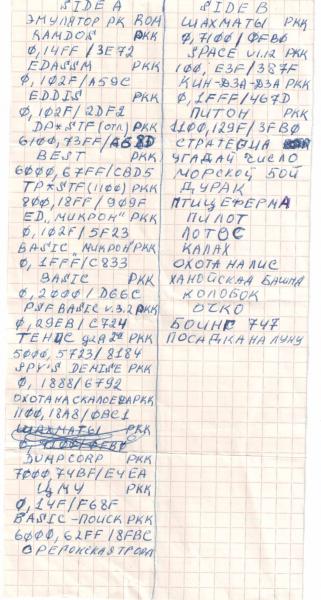 SIDE A
ЭМУЛЯТОР РК КОМ
RAMDOS РКК
0,14FF/3E72
EDASM РКК
0,102F/A59C
EDDIS РКК
0,102F/2DF2
DP*STF(отл.) РКК
6100,73FF/A68D
BEST РКК
6000,67FF/C8D5
TP*STF(1100) РКК
800,18FF/909F
ED„МИКРОН" РКК
0,102F/5F23
BASIC „МИКРОН" РКК
0,1FFF/C833
BASIC РКК
0,2000/D66C
PSF BASIC v.3.2 РКК
0,29EB/C724
ТЕННИС РКК
5000,5723/8184
SPY'S DEMISE РКК
0,1888/6792
ОХОТА НА СКАЛОЕДА РКК
1100,18A8/0BC1
ШАХМАТЫ РКК
DUMPCORP РКК
7000,74BF/E4EA
ЦМУ РКК
0,14F/F68F
BASIC-ПОИСК РКК
6000,62FF/8FBC
ОРЕГОНСКАЯ ТРОПА
SIDE B
ШАХМАТЫ РКК
0,7100/0FB0
SPACE v1.12 РКК
100,E3F/387F
КИН-ДЗА-ДЗА РКК
0,1FFF/467D
ПИТОН РКК
1100,129F/3FB0
СТРАТЕГИЯ
УГАДАЙ ЧИСЛО
МОРСКОЙ БОЙ
ДУРАК
ПТИЦЕФЕРМА
ПИЛОТ
ЛОТОС
КАЛАХ
ОХОТА НА ЛИС
ХАНОЙСКАЯ БАШНЯ
КОЛОБОК
ОЧКО
БОИНГ 747
ПОСАДКА НА ЛУНУ